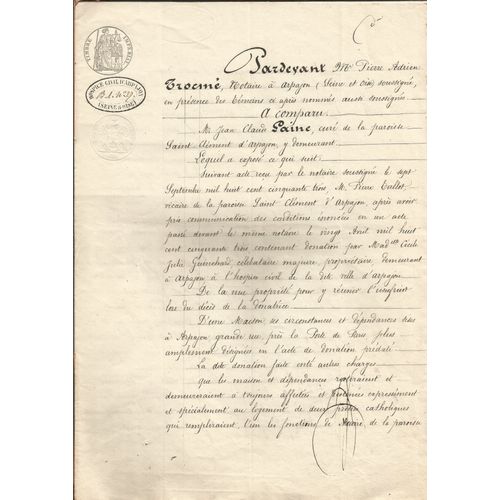 TIMBRE IMPERIAL
HOSPICE CIVIL D'ARPAJON
(SEINE & OISE)
Pardevant Me Pierre Adrien
Trocmé, Notaire à Arpajon (Seine et Oise) soussigné,
en présence des témoins ci après nommés aussi soussignés
A comparu
M. Jean Claude Paine, curé de la paroisse
Saint Clément d'Arpajon, y demeurant.
Lequel a exposé ce qui suit:
Suivant acte reçu par le notaire soussigné le sept
Septembre mil huit cent cinquante trois, M. Pierre
vicaire de la paroisse Saint Clément d'Arpajon après avoir
pris communication des conditions énoncées en un acte
passé devant le même notaire le vingt Avril mil huit
cent cinquante trois contenant donation par Mad.elle Cécile
Julie célibataire majeure, propriétaire demeurant
à Arpajon à l'hospice civil de la dite ville d'arpajon.
De la nue propriété pour y réunir l'usufruit
lors du décès de la donatrice
D'une Maison ses circonstances et dépendances sises
à Arpajon grande rue, près la Porte de Paris plus
amplement désignées en l'acte de donation prédaté.
La dite donation faite entr'autres charges.
que les maison et dépendances resteraient et
demeureraient à toujours affectées et destinées expressément
et spécialement au logement de deux prêtres catholiques
qui rempliraient, l'un les fonctions de Vicaire, de la paroisse